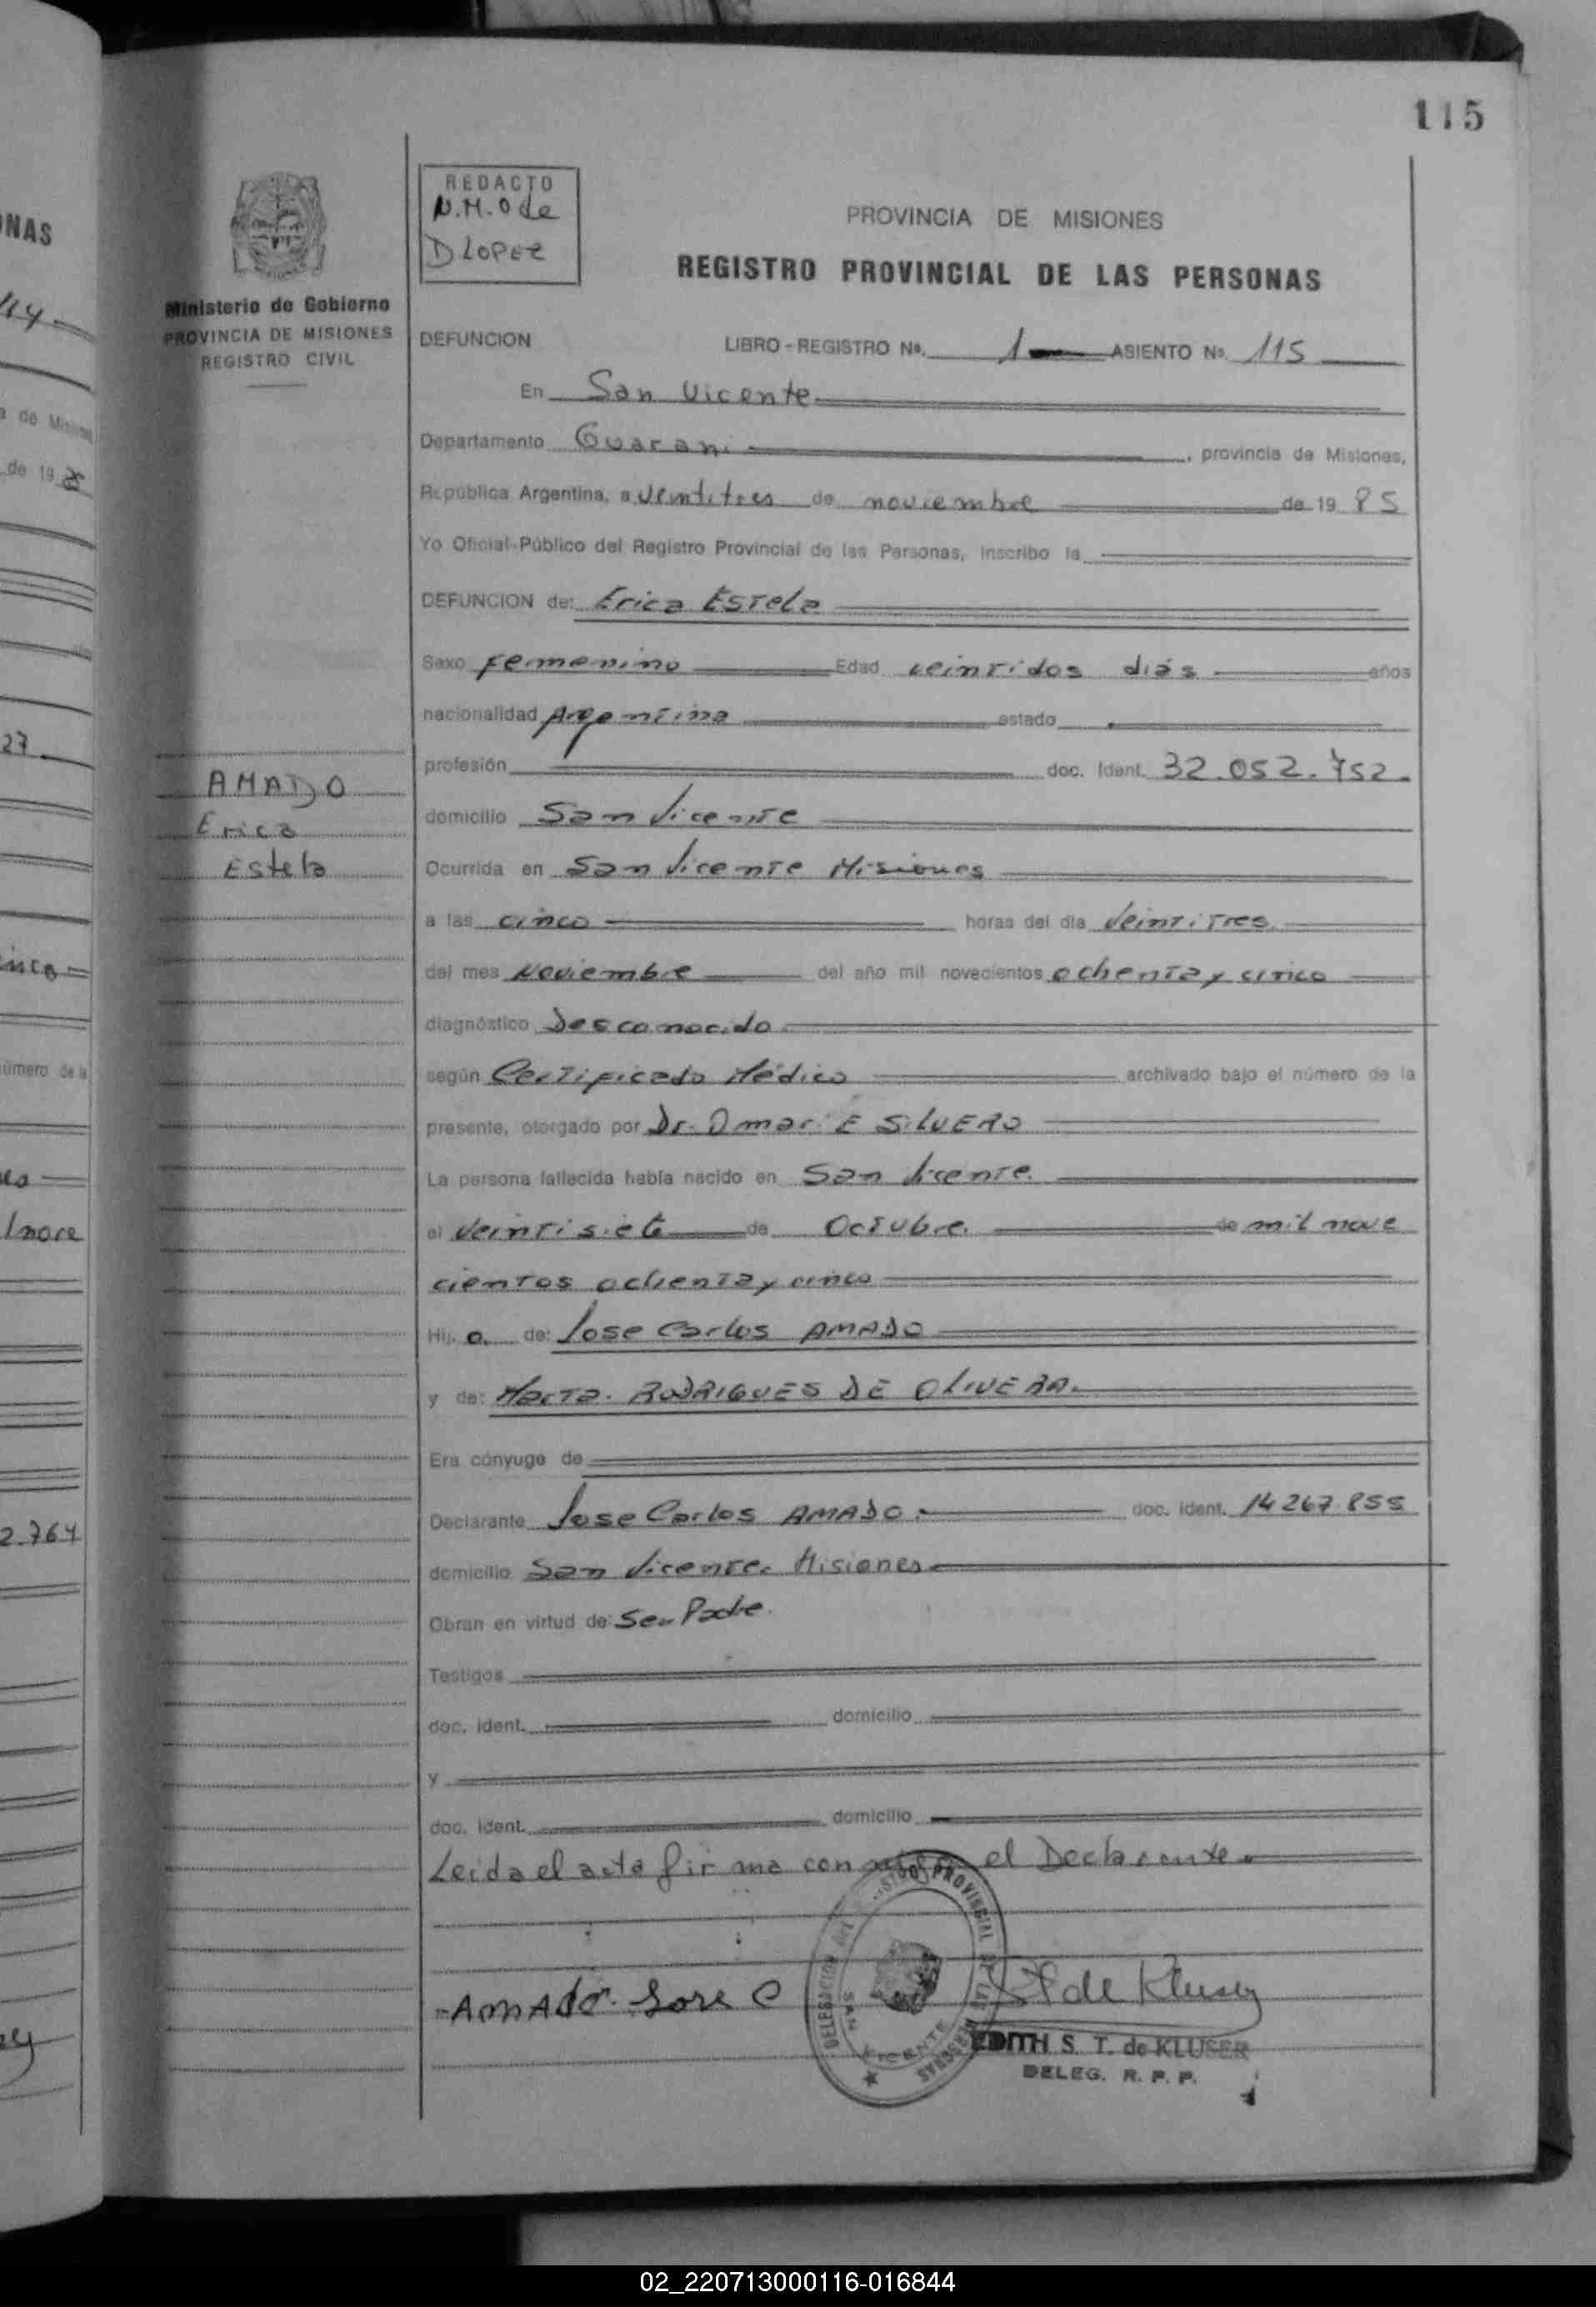 115
REDACTO
N.M.O de
D LOPEZ
PROVINCIA DE MISIONES
REGISTRO PROVINCIAL DE LAS PERSONAS
Ministerio de Gobierno
PROVINCIA DE MISIONES
REGISTRO CIVIL
DEFUNCION LIBRO-REGISTRO Nº. 1 ASIENTO Nº. 115
En San Vicente
Departamento Guarani, provincia de Misiones,
República Argentina, a ventitres de noviembre de 19 85
Yo Oficial Público del Registro Provincial de las Personas, inscribo la
DEFUNCION de: Erica Estela
Sexo Femenino Edad veintidos diás años
nacionalidad Argentina estado
profesión doc. Ident. 32.052.752.
AMADO
Erica
Estela
domicilio San Vicente
Ocurrida en San Vicente Misiones
a las cinco horas del día Veintitres
del mes Noviembre del año mil novecientos ochenta y cinco
diagnóstico Desconocido
según Certificado Médico archivado bajo el número de la
presente, otorgado por Dr. Omar E SILVERO
La persona fallecida había nacido en San Vicente.
el Veintisiete de Octubre. de mil nove
cientos ochenta y cinco
Hij a de: Jose Carlos AMADO
y de: Marta. RODRIGUES DE OLIVERA.
Era cónyuge de
Declarante Jose Carlos AMADO. doc. ident. 14 267.855
domicilio San Vicente. Misiones
Obran en virtud de: Ser Padre.
Testigos
doc. ident. domicilio
y
doc. ident. domicilio
Leida el acta firma con el Declarante
-AMADO. Jose C
DELEGACION DEL REGISTRO PROVINCIAL DE LAS PERSONAS
SAN VICENTE
ST de Kluser
EDITH S. T. de KLUSER
DELEG. R. P. P.
02_220713000116-016844